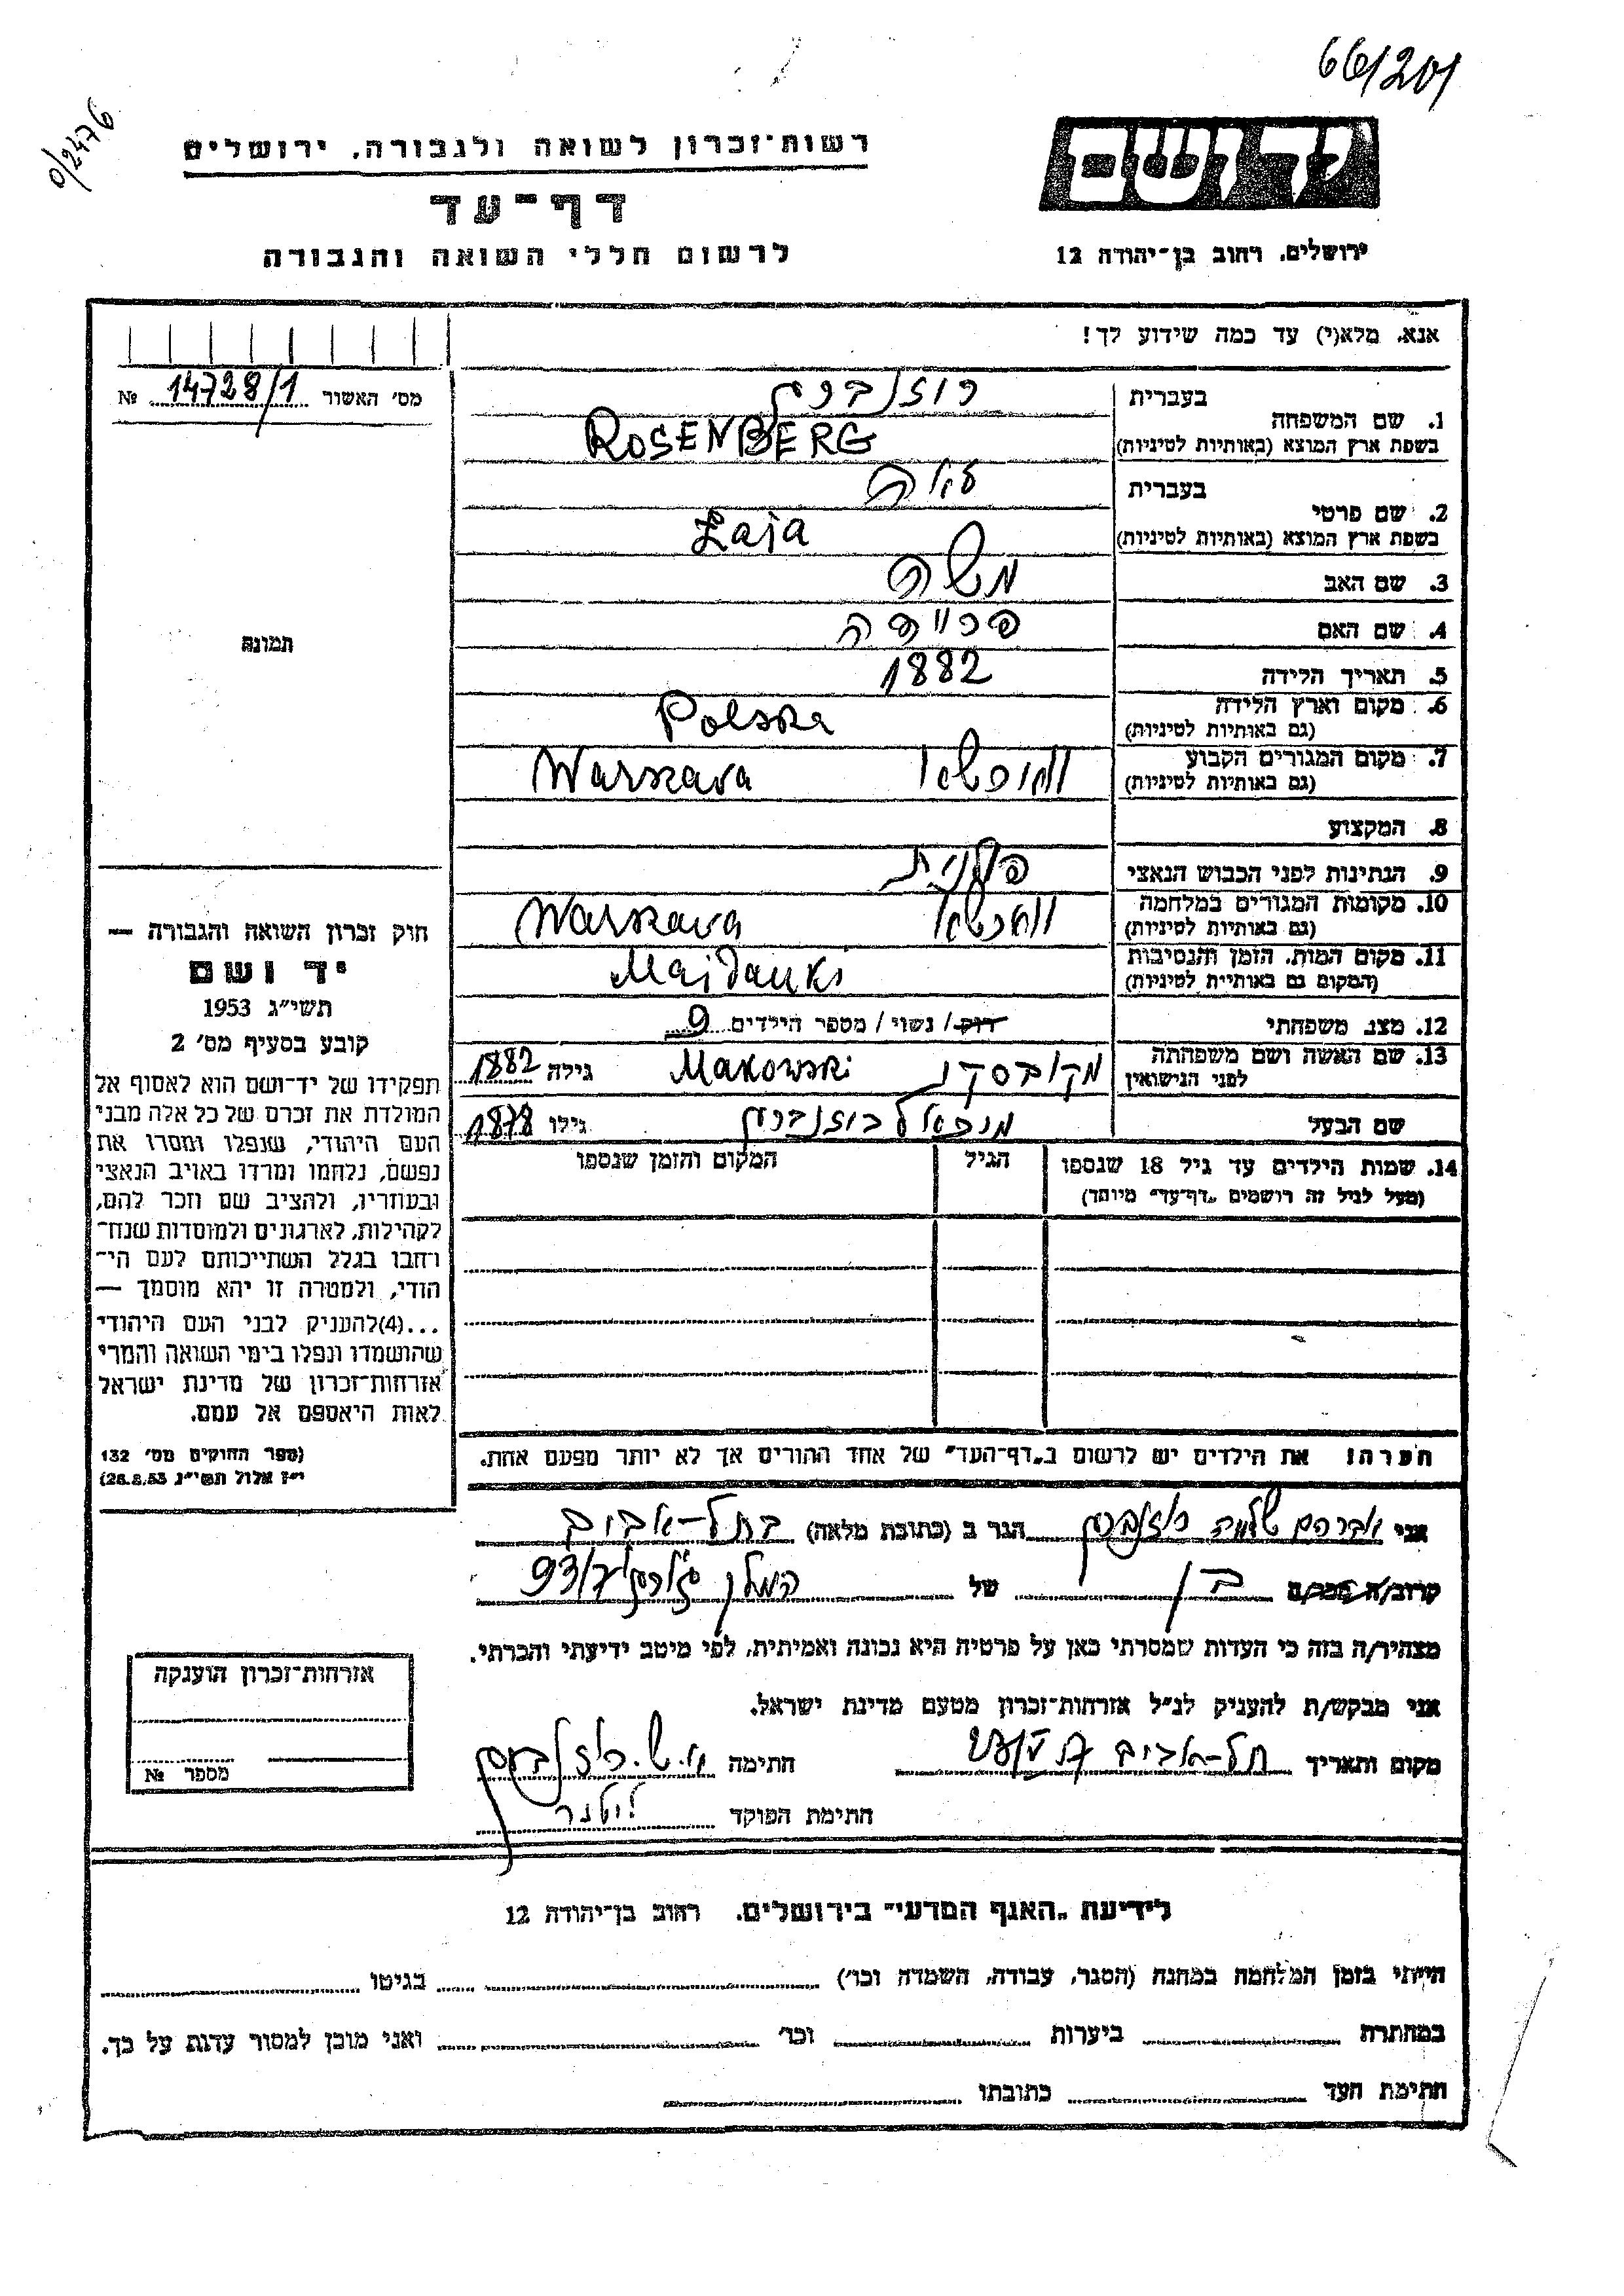 66/201
0/2476
רשות־זכרון לשואה ולגבורה, ירושלים
דף־עד
לרשום חללי השואה והגבורה
יד ושם
ירושלים, רחוב בן־יהודה 12
אנא, מלא(י) עד כמה שידוע לך!
מס׳ האשור 14728/1 №
בעברית רוזנברג
1. שם המשפחה
בשפת ארץ המוצא (באותיות לטיניות) ROSENBERG
בעברית לאה
2. שם פרטי
בשפת ארץ המוצא (באותיות לטיניות) Łaja
3. שם האב משה
4. שם האם
5. תאריך הלידה 1882
6. מקום וארץ הלידה Polska
(גם באותיות לטיניות)
7. מקום המגורים הקבוע Warszava
(גם באותיות לטיניות)
8. המקצוע
9. הנתינות לפני הכבוש הנאצי פולנית
10. מקומות המגורים במלחמה Warszava
(גם באותיות לטיניות)
11. מקום המות, הזמן והנסיבות Majdanki
(המקום גם באותיות לטיניות)
12. מצב משפחתי רוק/ נשוי/ מספר הילדים 9
13. שם האשה ושם משפחתה מקובסקי Makowski גילה 1882
לפני הנישואין
שם הבעל רוזנברג גילו 1878
14. שמות הילדים עד גיל 18 שנספו הגיל המקום והזמן שנספו
(מעל לגיל זה רושמים „דף־עד״ מיוחד)
הערה! את הילדים יש לרשום ב„דף־העד״ של אחד ההורים אך לא יותר מפעם אחת.
תמונה
חוק זכרון השואה והגבורה —
יד ושם
תשי״ג 1953
קובע בסעיף מס׳ 2
תפקידו של יד־ושם הוא לאסוף אל
המולדת את זכרם של כל אלה מבני
העם היהודי, שנפלו ומסרו את
נפשם, נלחמו ומרדו באויב הנאצי
ובעוזריו, ולהציב שם וזכר להם,
לקהילות, לארגונים ולמוסדות שנח־
רחבו בגלל השתייכותם לעם הי־
הודי, ולמטרה זו יהא מוסמך —
...(4)להעניק לבני העם היהודי
שהושמדו ונפלו בימי השואה והמרי
אזרחות־זכרון של מדינת ישראל
לאות היאספם אל עמם.
(ספר החוקים מס׳ 132
י״ז אלול תשי״ג 28.8.53)
אני אברהם שלמה רוזנברג הגר ב (כתובת מלאה) בתל-אביב
קרוב/ה מכר/ה בן של 93/7
מצהיר/ה בזה כי העדות שמסרתי כאן על פרטיה היא נכונה ואמיתית, לפי מיטב ידיעתי והכרתי.
אני מבקש/ת להעניק לנ״ל אזרחות־זכרון מטעם מדינת ישראל.
מקום ותאריך תל-אביב חתימה א.ש. רוזנברג
חתימת הפוקד
אזרחות־זכרון הוענקה
מספר №
לידיעת „האגף המדעי״ בירושלים, רחוב בן־יהודה 12
הייתי בזמן המלחמה במחנה (הסגר, עבודה, השמדה וכו׳) בגיטו
במחתרת ביערות וכו׳ ואני מוכן למסור עדות על כך.
חתימת העד כתובתו